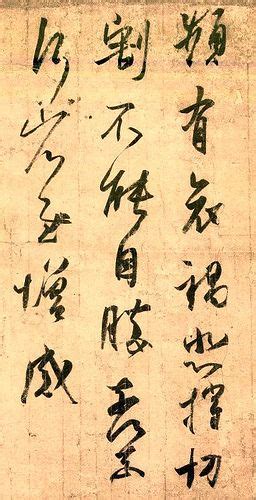 頻有哀禍悲摧切
割不能自勝奈々
何々省慰增感